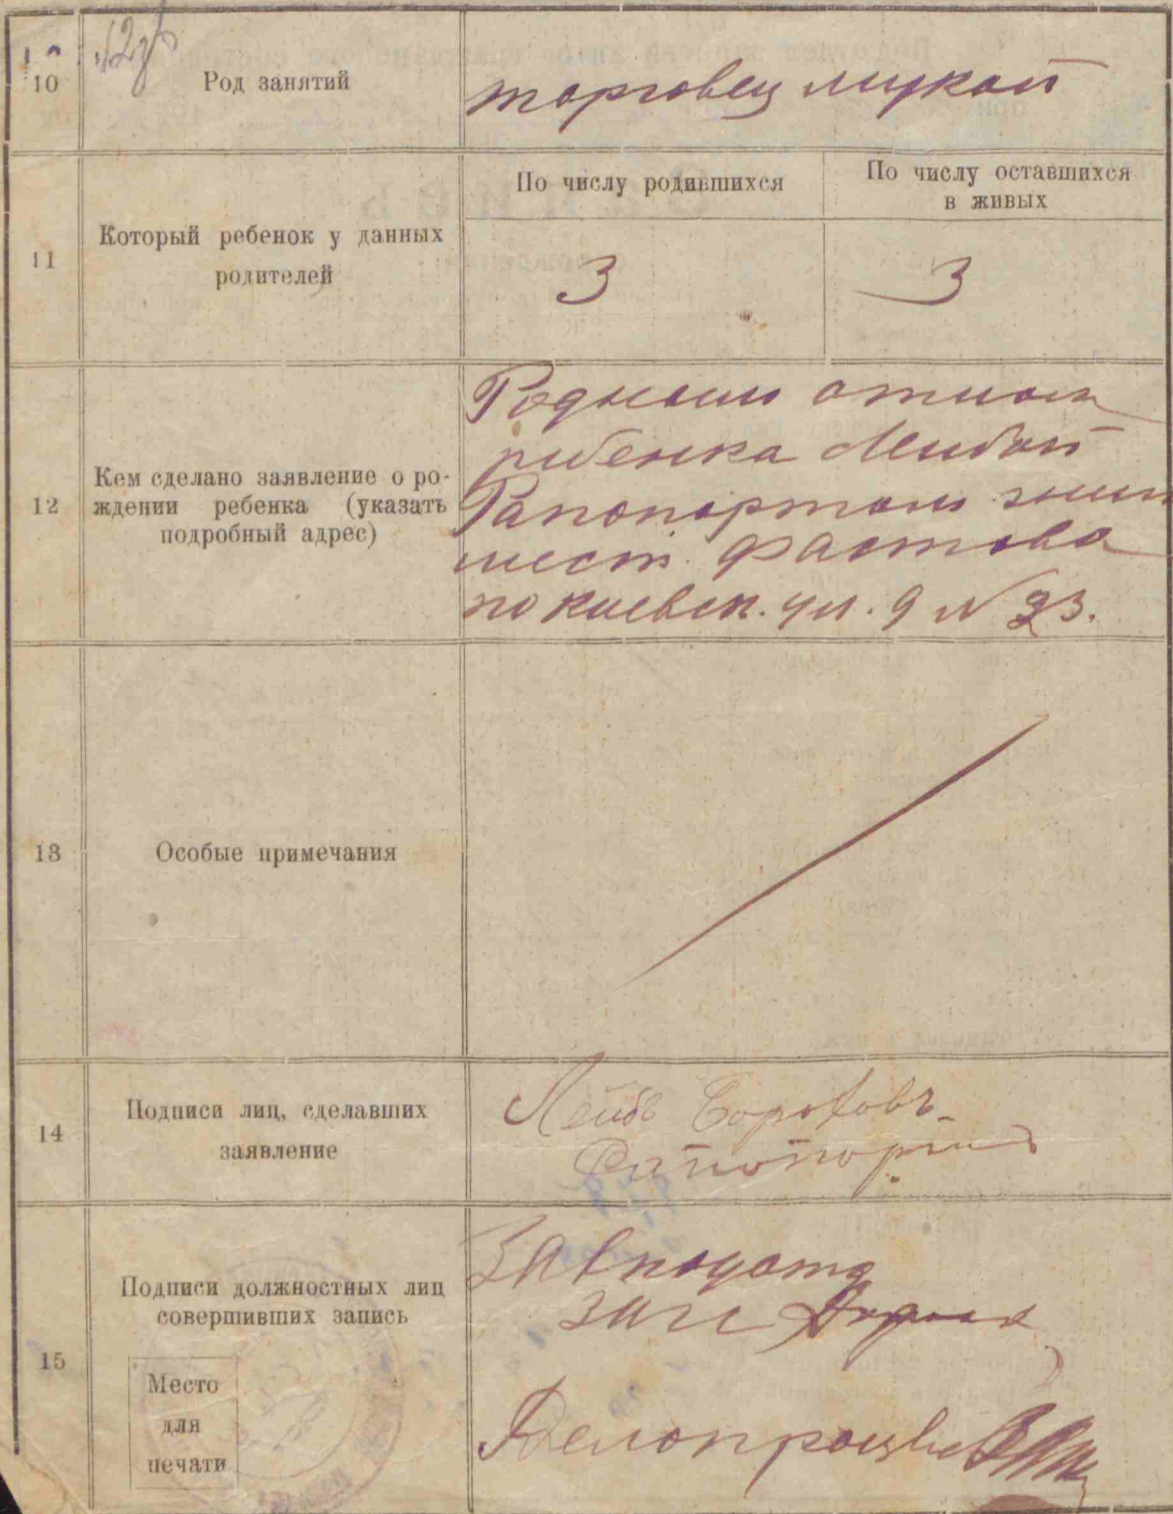 10
Род занятий
торговец мукой
11
Который ребенок у данных
родителей
По числу родившихся
По числу оставшихся
в живых
3
3
12
Кем сделано заявление о ро-
ждении ребенка (указать
подробный адрес)
Родным отцом
ребенка Лейбой
Рапопортом
мест. Фастова
по киевск. ул. д № 33.
13
Особые примечания
14
Подписи лиц, сделавших
заявление
Лейбъ Бороховъ
Рапопортъ
15
Подписи должностных лиц
совершивших запись
Место
для
печати
Завподотд
загс
Делопроизв